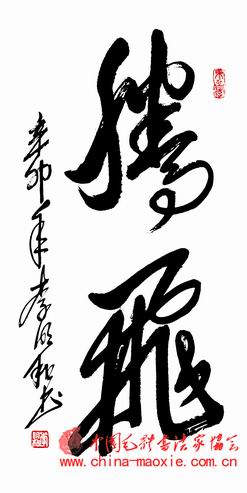 騰飛
辛卯年李明和书
中国毛体书法家协会
www.china-maoxie.com.cn